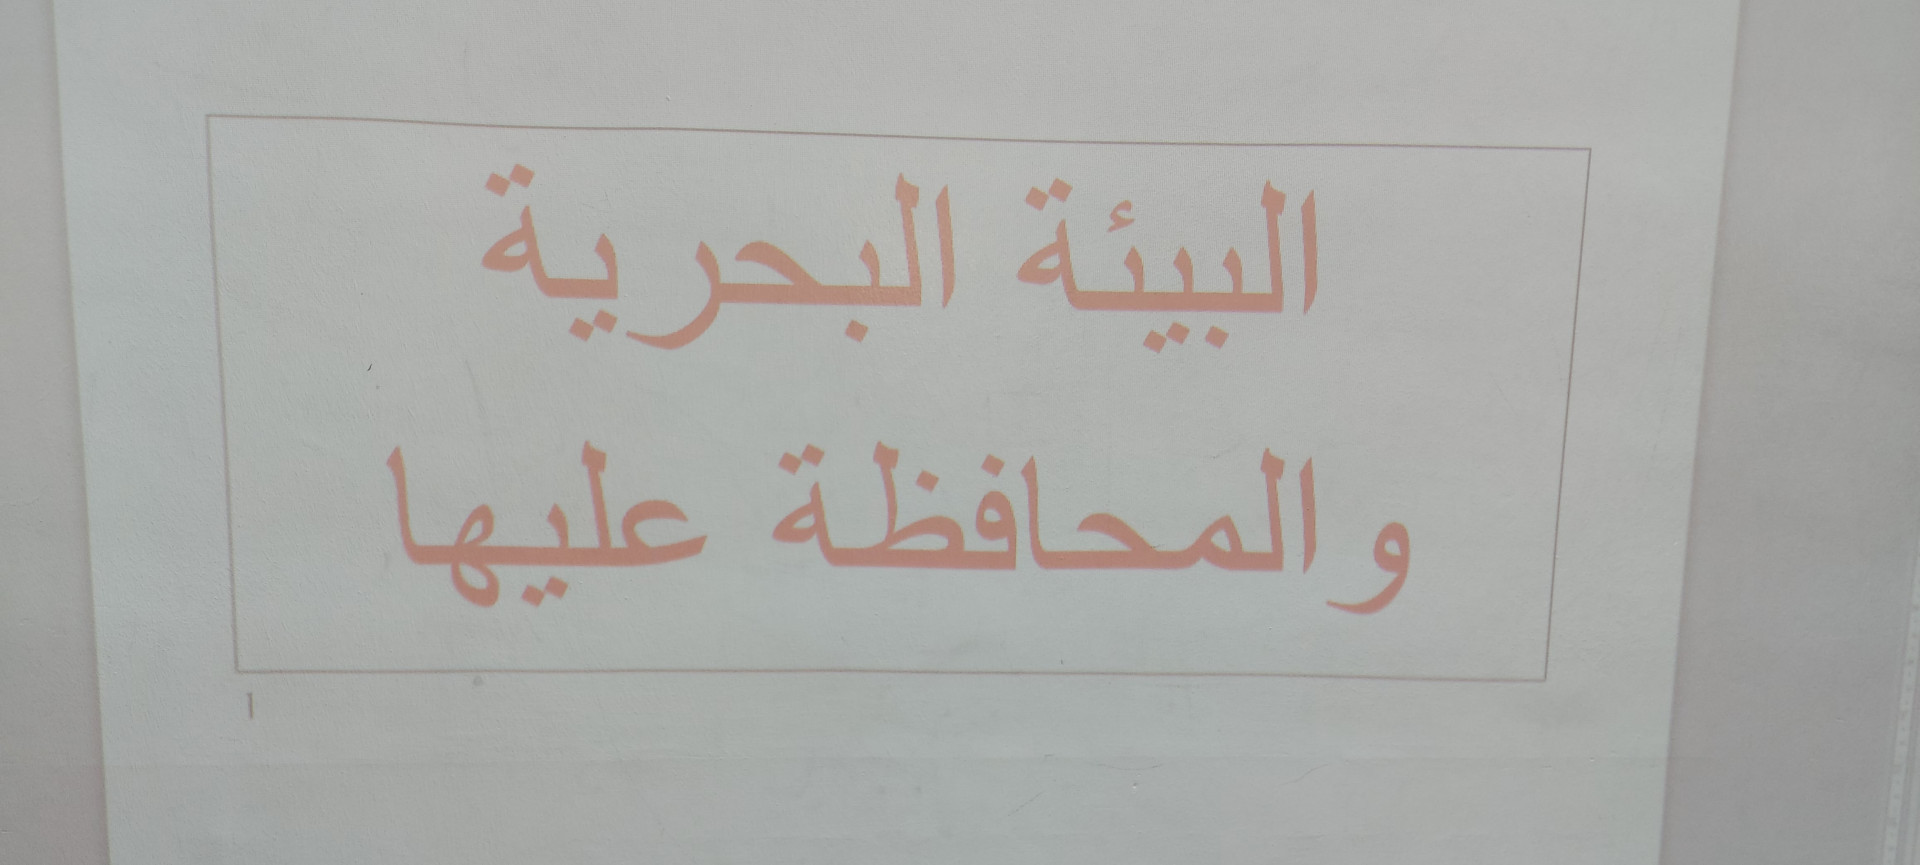 البيئة البحرية
والمحافظة عليها